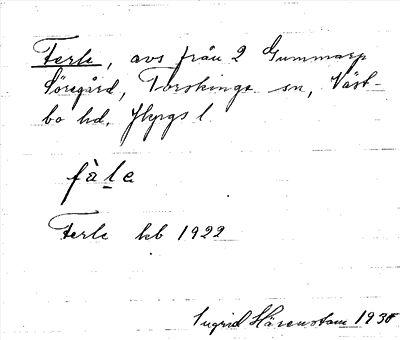 Ferle, avs från 2 Gummarp
Söregård, Torskinge sn, Väst-
bo hd, Jkpgs l.
fàle
Ferle kb 1922
Ingrid Härenstam 1938